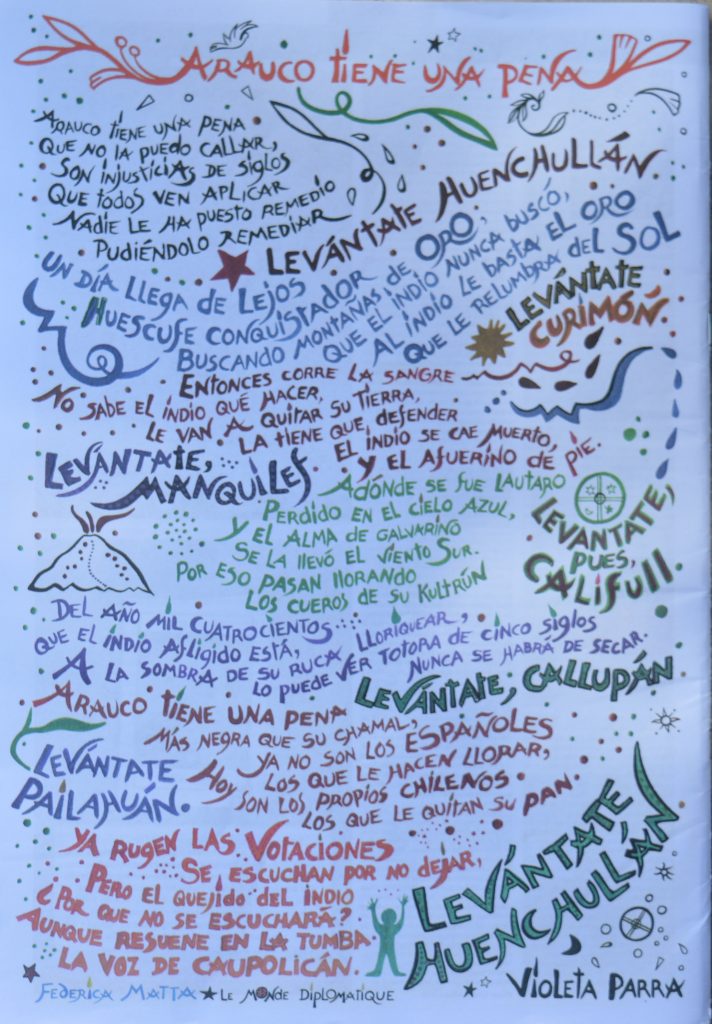 ARAUCO TIENE UNA PENA
ARAUCO TIENE UNA PENA
QUE NO LA PUEDO CALLAR,
SON INJUSTICIAS DE SIGLOS
QUE TODOS VEN APLICAR
NADIE LE HA PUESTO REMEDIO
PUDIÉNDOLO REMEDIAR
LEVÁNTATE HUENCHULLÁN.
UN DÍA LLEGA DE LEJOS
HUESCUFE CONQUISTADOR
BUSCANDO MONTAÑAS DE ORO,
QUE EL INDIO NUNCA BUSCÓ,
AL INDIO LE BASTA EL ORO
QUE LE RELUMBRA DEL SOL
LEVÁNTATE
CURIMÓN.
ENTONCES CORRE LA SANGRE
NO SABE EL INDIO QUÉ HACER,
LE VAN A QUITAR SU TIERRA,
LA TIENE QUE DEFENDER
EL INDIO SE CAE MUERTO,
Y EL AFUERINO DE PIE.
LEVÁNTATE,
MANQUILEF
ADÓNDE SE FUE LAUTARO
PERDIDO EN EL CIELO AZUL,
Y EL ALMA DE GALVARINO
SE LA LLEVÓ EL VIENTO SUR.
POR ESO PASAN LLORANDO
LOS CUEROS DE SU KULTRÚN
LEVÁNTATE,
PUES,
CALIFULL.
DEL AÑO MIL CUATROCIENTOS
QUE EL INDIO AFLIGIDO ESTÁ,
A LA SOMBRA DE SU RUCA
LO PUEDE VER LLORIQUEAR,
TOTORA DE CINCO SIGLOS
NUNCA SE HABRÁ DE SECAR.
LEVÁNTATE, CALLUPÁN
ARAUCO TIENE UNA PENA
MÁS NEGRA QUE SU CHAMAL,
YA NO SON LOS ESPAÑOLES
LOS QUE LE HACEN LLORAR,
HOY SON LOS PROPIOS CHILENOS
LOS QUE LE QUITAN SU PAN.
LEVÁNTATE
PAILAHUÁN.
YA RUGEN LAS VOTACIONES
SE ESCUCHAN POR NO DEJAR,
PERO EL QUEJIDO DEL INDIO
¿POR QUE NO SE ESCUCHARÁ?
AUNQUE RESUENE EN LA TUMBA
LA VOZ DE CAUPOLICÁN.
LEVÁNTATE,
HUENCHULLÁN
VIOLETA PARRA
FEDERICA MATTA ★ LE MONDE DIPLOMATIQUE